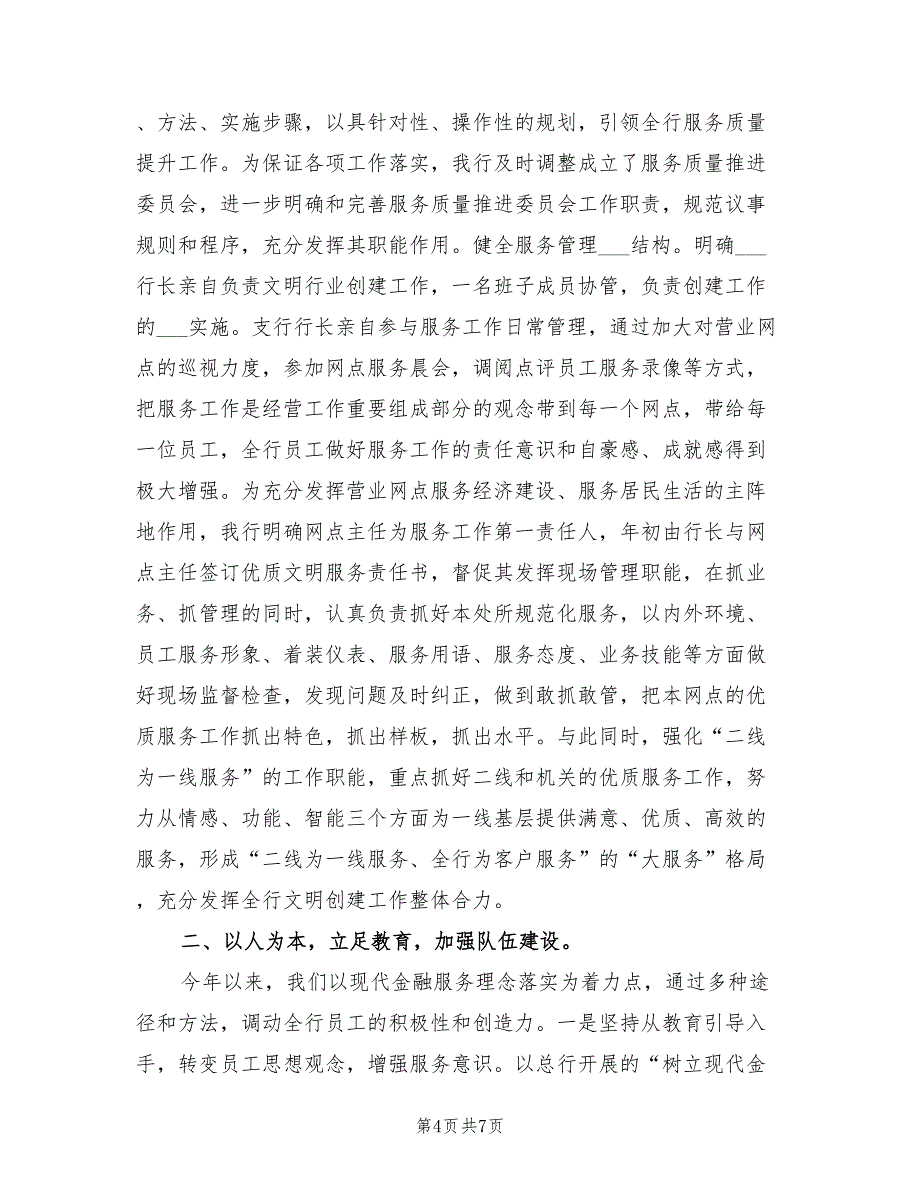 、方法、实施步骤，以具针对性、操作性的规划，引领全行服务质量
提升工作。为保证各项工作落实，我行及时调整成立了服务质量推进
委员会，进一步明确和完善服务质量推进委员会工作职责，规范议事
规则和程序，充分发挥其职能作用。健全服务管理___结构。明确___
行长亲自负责文明行业创建工作，一名班子成员协管，负责创建工作
的___实施。支行行长亲自参与服务工作日常管理，通过加大对营业网
点的巡视力度，参加网点服务晨会，调阅点评员工服务录像等方式，
把服务工作是经营工作重要组成部分的观念带到每一个网点，带给每
一位员工，全行员工做好服务工作的责任意识和自豪感、成就感得到
极大增强。为充分发挥营业网点服务经济建设、服务居民生活的主阵
地作用，我行明确网点主任为服务工作第一责任人，年初由行长与网
点主任签订优质文明服务责任书，督促其发挥现场管理职能，在抓业
务、抓管理的同时，认真负责抓好本处所规范化服务，以内外环境、
员工服务形象、着装仪表、服务用语、服务态度、业务技能等方面做
好现场监督检查，发现问题及时纠正，做到敢抓敢管，把本网点的优
质服务工作抓出特色，抓出样板，抓出水平。与此同时，强化“二线
为一线服务”的工作职能，重点抓好二线和机关的优质服务工作，努
力从情感、功能、智能三个方面为一线基层提供满意、优质、高效的
服务，形成“二线为一线服务、全行为客户服务”的“大服务”格局
，充分发挥全行文明创建工作整体合力。
二、以人为本，立足教育，加强队伍建设。
今年以来，我们以现代金融服务理念落实为着力点，通过多种途
径和方法，调动全行员工的积极性和创造力。一是坚持从教育引导入
手，转变员工思想观念，增强服务意识。以总行开展的“树立现代金
第4页共7页